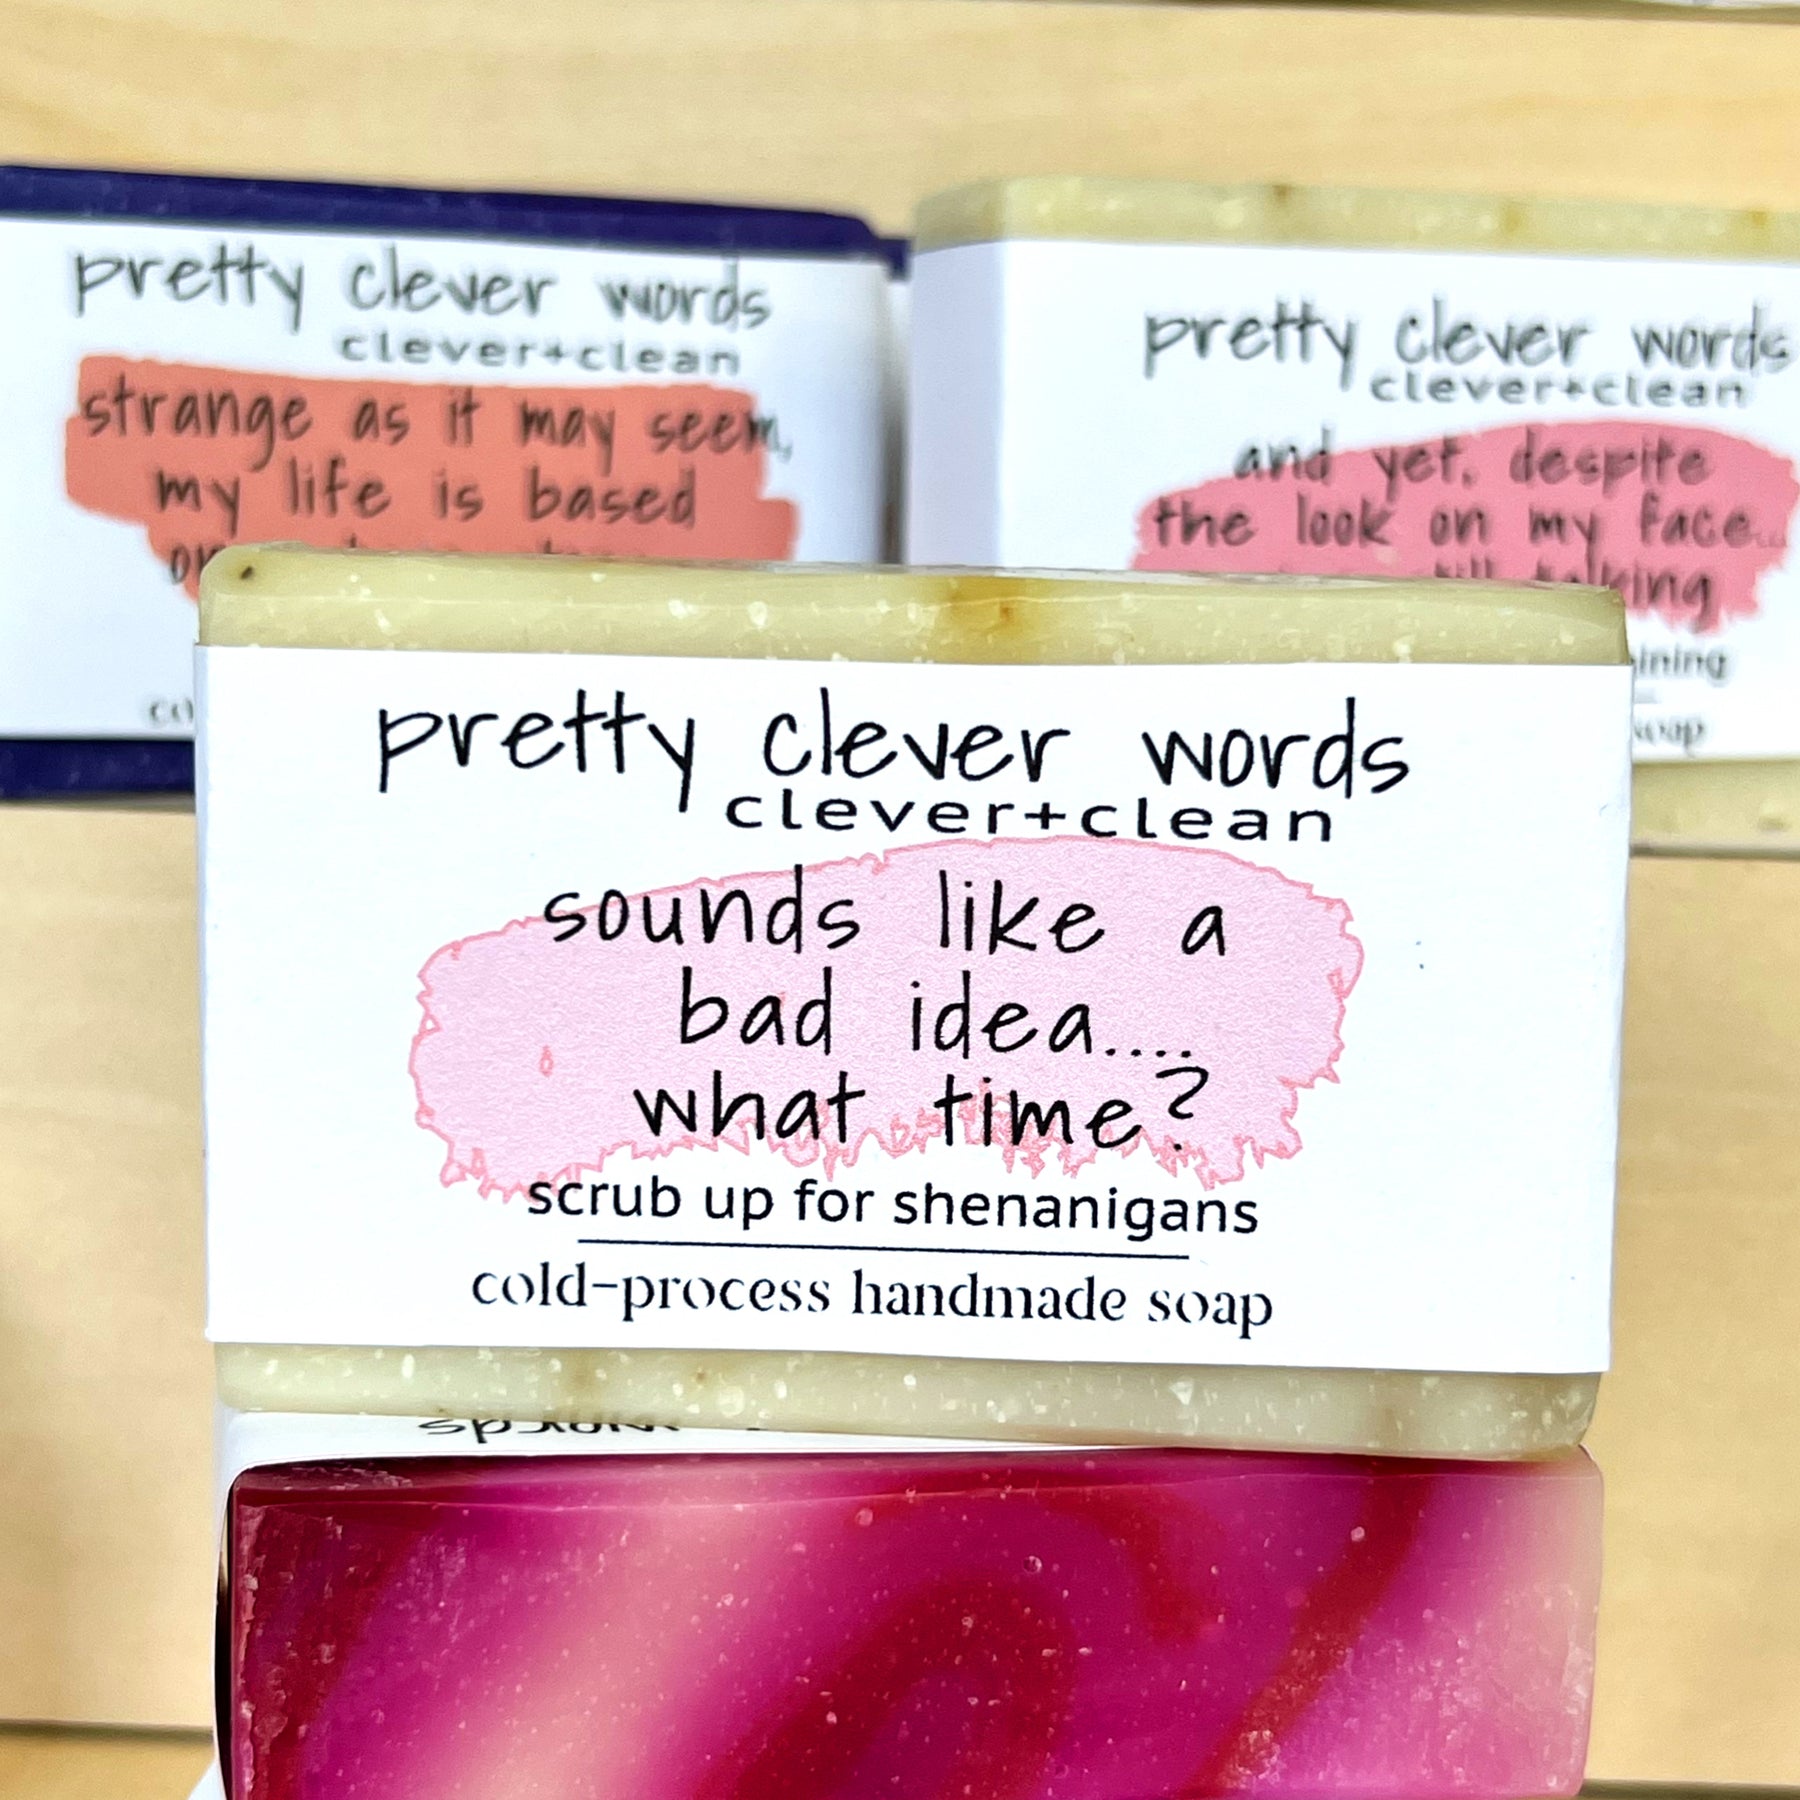 pretty clever words
clever+clean
strange as it may seem,
my life is based
on
pretty clever words
clever+clean
and yet, despite
the look on my face...
still talking
soap
pretty clever words
clever+clean
sounds like a
bad idea....
what time?
scrub up for shenanigans
cold-process handmade soap
words